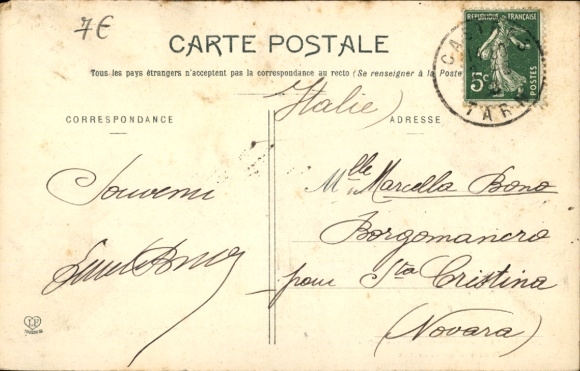 7€
CARTE POSTALE
Tous les pays étrangers n'acceptent pas la correspondance au recto (Se renseigner à la Poste
RÉPUBLIQUE FRANÇAISE
5c
POSTES
TARN
Italie)
CORRESPONDANCE
ADRESSE
Souvenir
Mlle Marcella Bono
Borgomanero
pour Sta Cristina
(Novara)